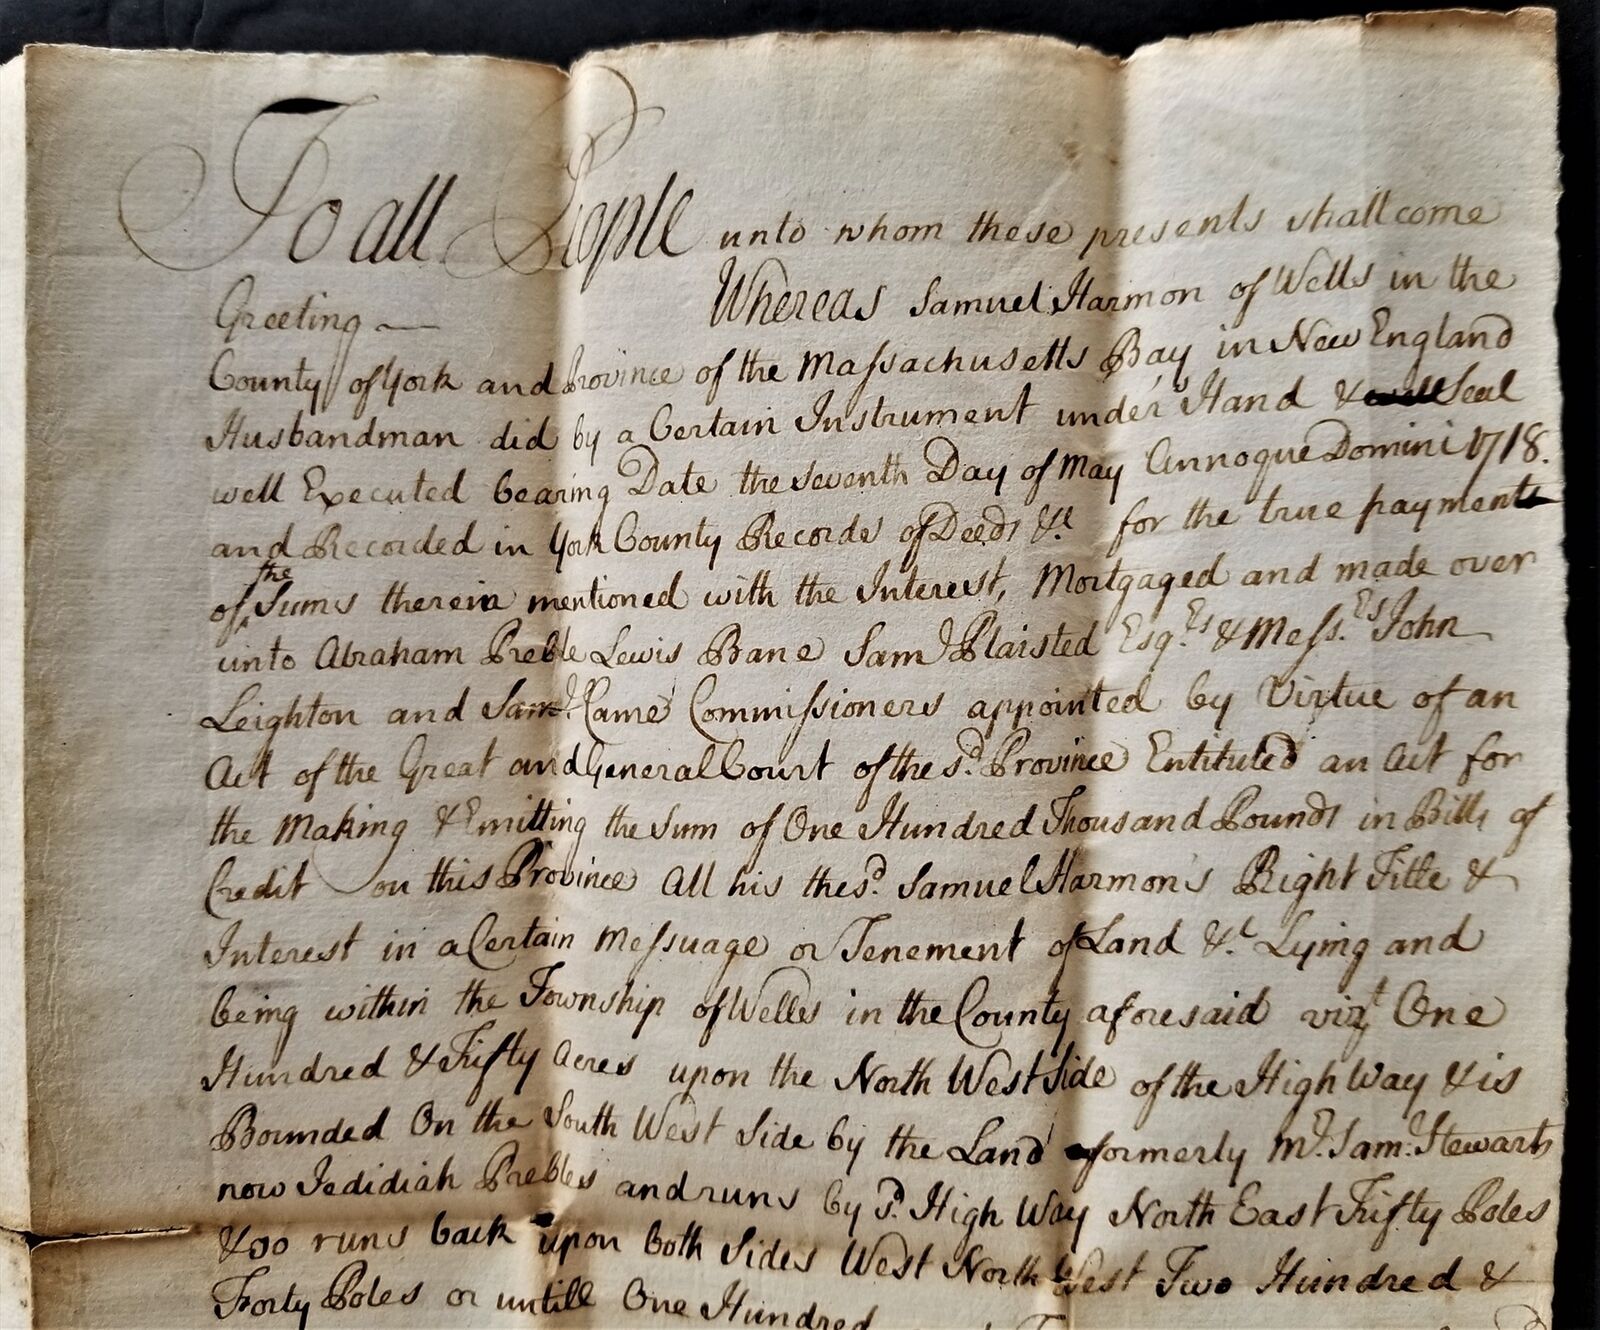 To all People unto whom these presents shall come
Greeting — Whereas Samuel Harmon of Wells in the
County of York and Province of the Massachusetts Bay in New England
Husbandman did by a Certain Instrument under Hand & Seal
well Executed bearing Date the seventh Day of May Annoque Domini 1718.
and Recorded in York County Records of Deeds &c for the true payment
of the Sums therein mentioned with the Interest, Mortgaged and made over
unto Abraham Preble Lewis Bane Saml Plaisted Esq.rs & Mess.rs John
Leighton and Saml. Came Commissioners appointed by Virtue of an
Act of the Great and General Court of the sd. Province Entituled an Act for
the Making & Emitting the Sum of One Hundred Thousand Pounds in Bills of
Credit on this Province All his the sd. Samuel Harmon's Right Title &
Interest in a Certain Messuage or Tenement of Land &c. Lying and
being within the Township of Welles in the County aforesaid vizt One
Hundred & Fifty Acres upon the North West Side of the High Way & is
Bounded On the South West Side by the Land formerly Mr. Saml. Stewarts
now Jedidiah Prebles and runs by sd. High Way North East Fifty Poles
& so runs back upon both Sides West North West Two Hundred &
Forty Poles or untill One Hundred